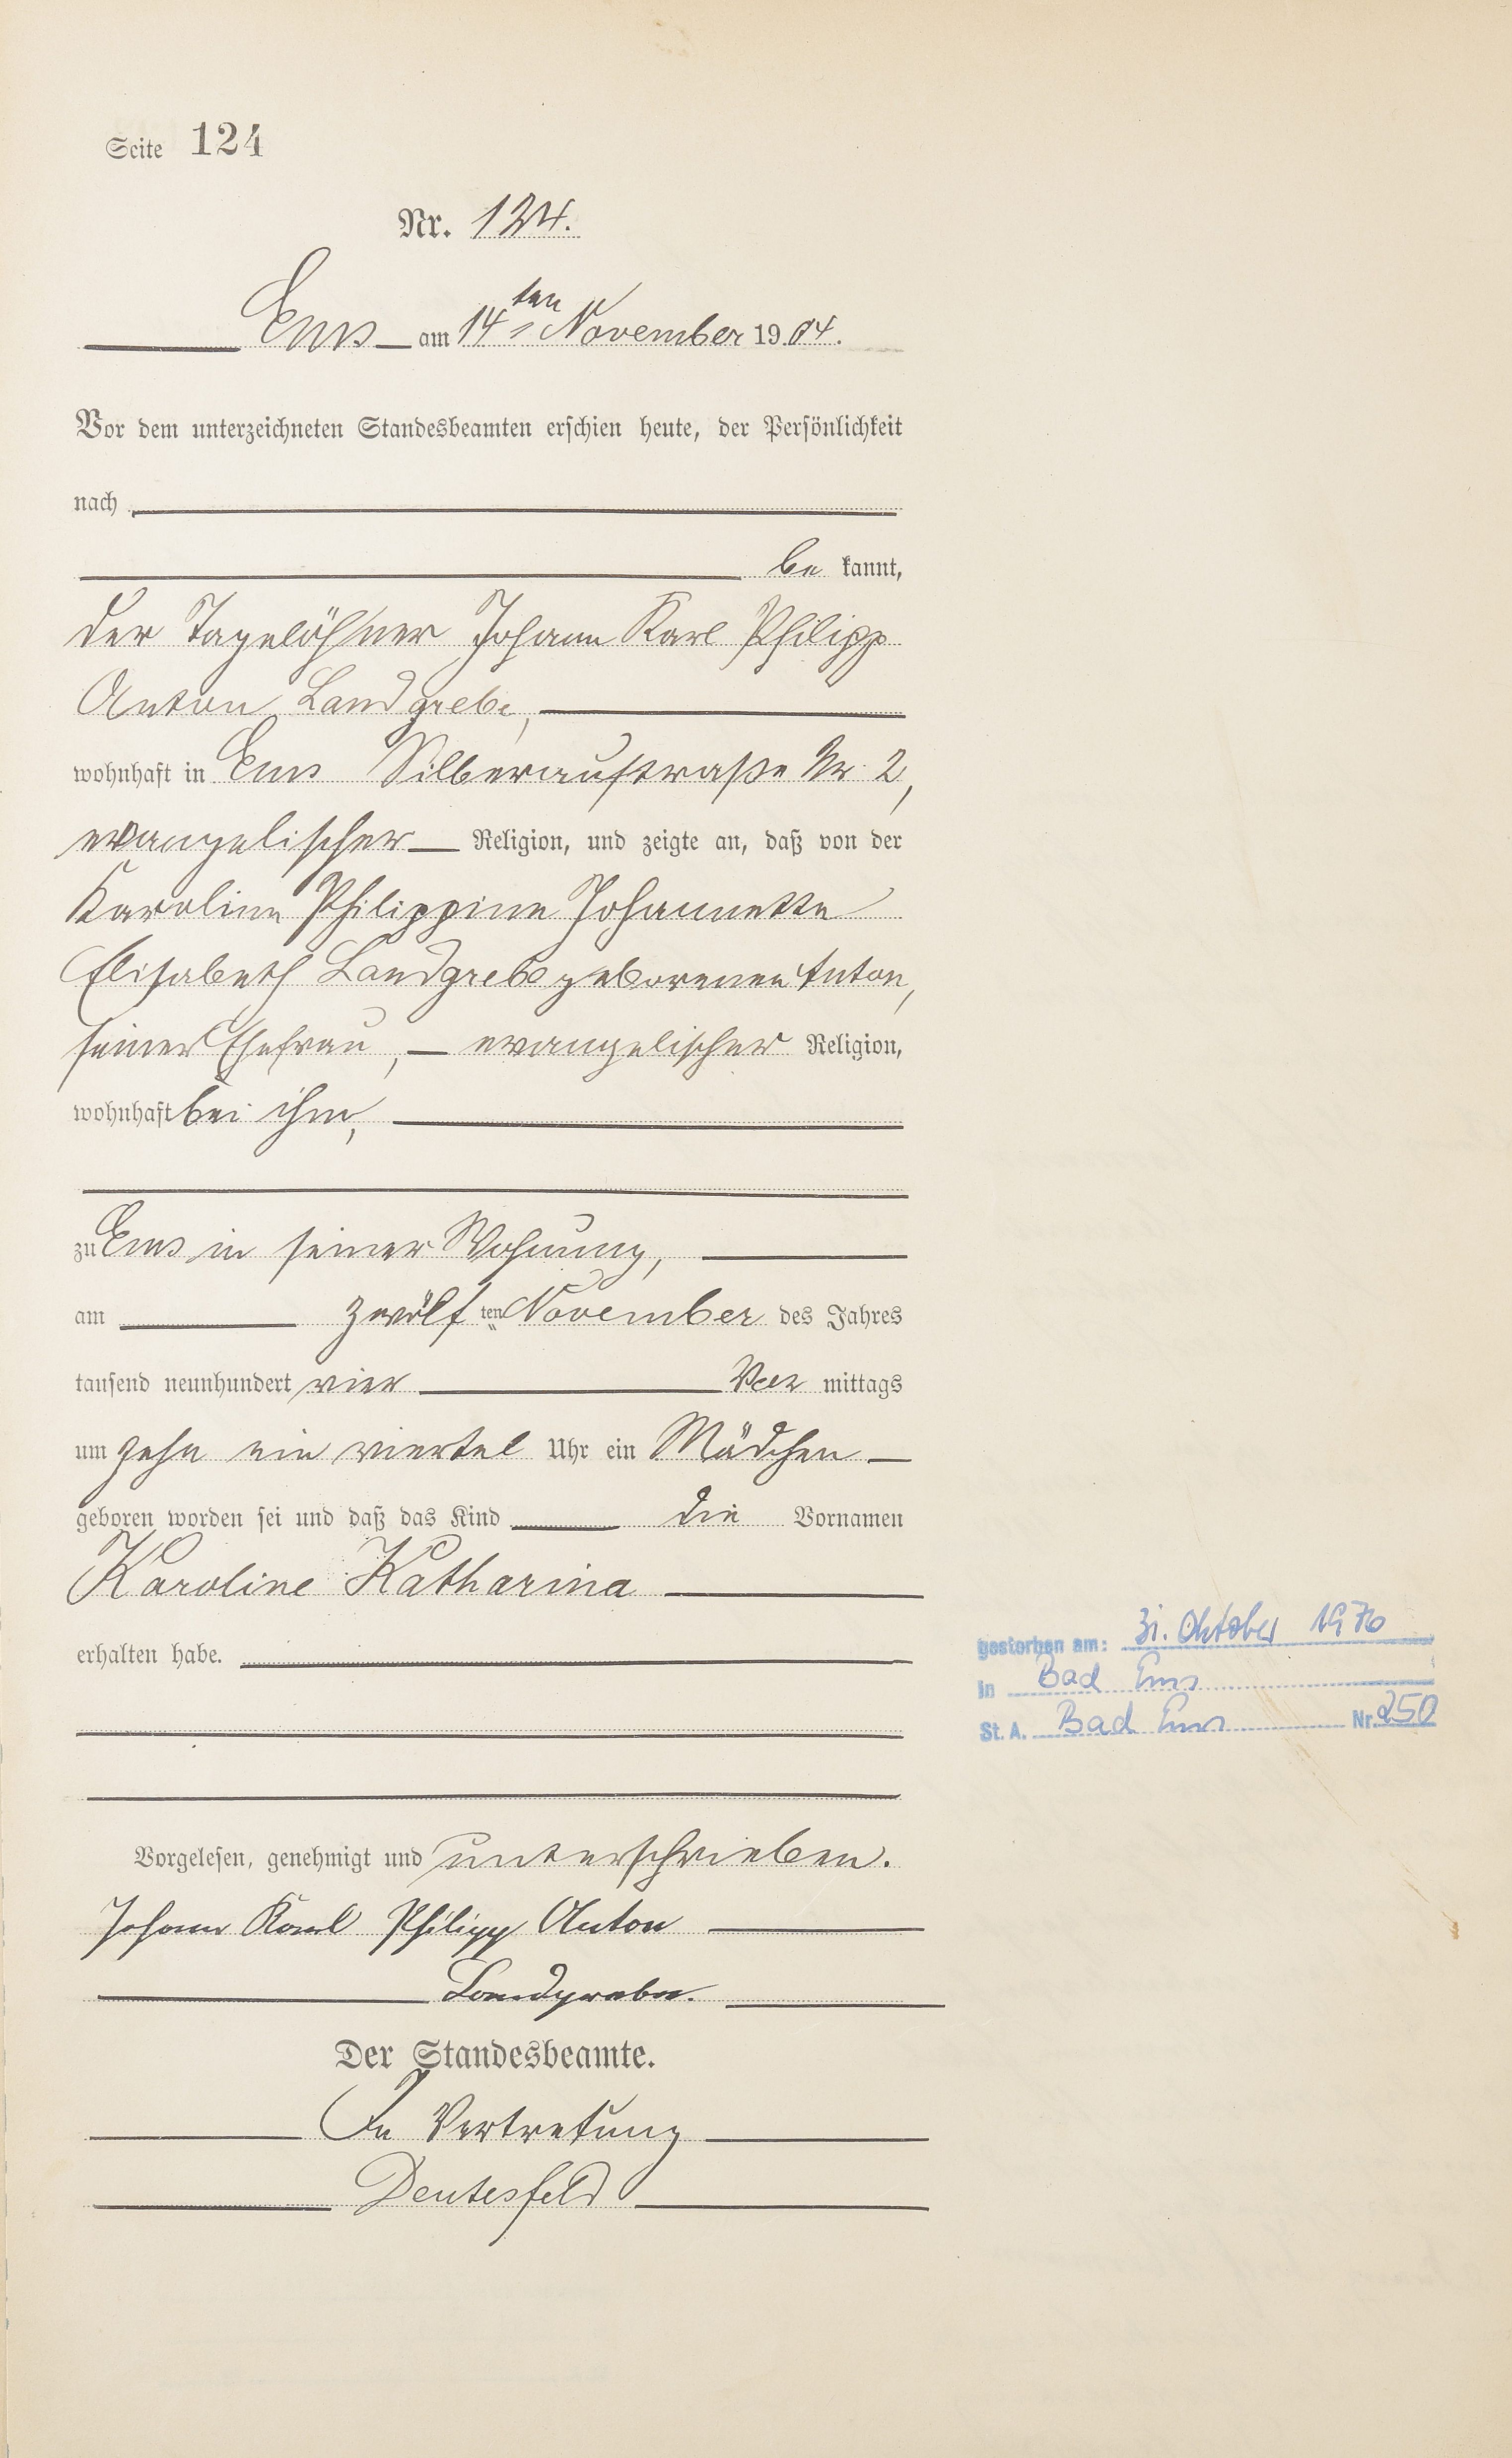 Seite 124
Nr. 124.
Ems am 14ten November 1904.
Vor dem unterzeichneten Standesbeamten erschien heute, der Persönlichkeit
nach
be kannt,
der Tagelöhner Johann Karl Philipp
Anton Landgrebe,
wohnhaft in Ems Silberaustraße Nr. 2,
evangelischer Religion, und zeigte an, daß von der
Karoline Philippine Johannette
Elisabeth Landgrebe geborenen Anton,
seiner Ehefrau, evangelischer Religion,
wohnhaft bei ihm,
zu Ems in seiner Wohnung,
am zwölften November des Jahres
tausend neunhundert vier Vor mittags
um zehn ein viertel Uhr ein Mädchen
geboren worden sei und daß das Kind die Vornamen
Karoline Katharina
erhalten habe.
gestorben am: 31. Oktober 1976
in Bad Ems
St. A. Bad Ems Nr. 250
Vorgelesen, genehmigt und unterschrieben.
Johann Karl Philipp Anton
Landgrebe.
Der Standesbeamte.
In Vertretung
Deutesfeld